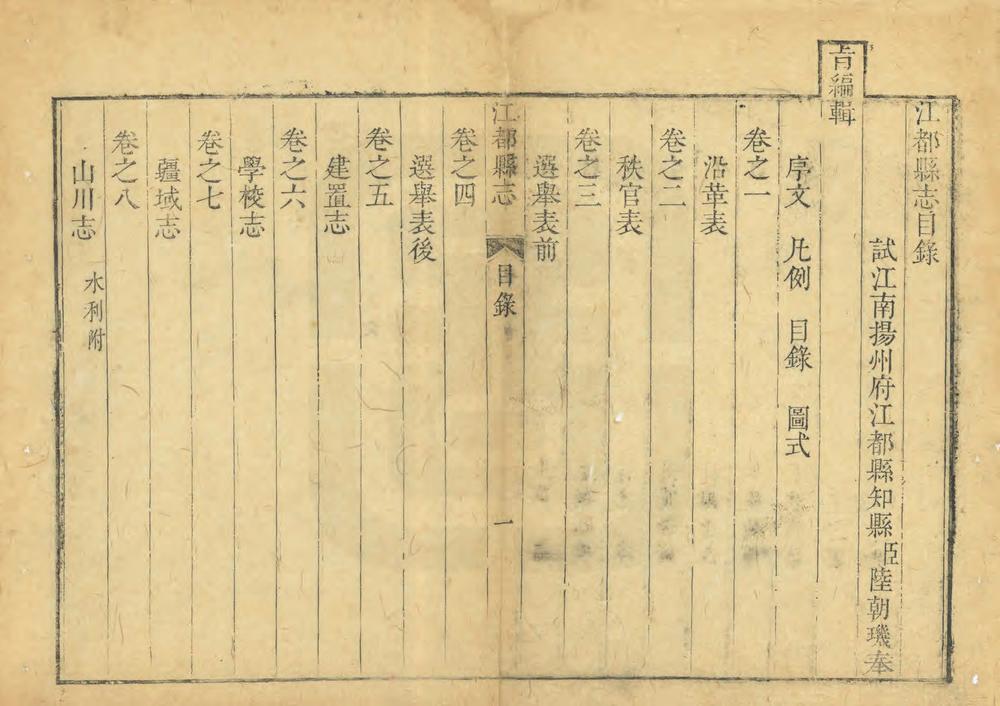 江都縣志目錄
試江南揚州府江都縣知縣臣陸朝璣奉
㫖編輯
序文 凡例 目錄 圖式
卷之一
沿革表
卷之二
秩官表
卷之三
選舉表前
江都縣志 目錄 一
卷之四
選舉表後
卷之五
建置志
卷之六
學校志
卷之七
疆域志
卷之八
山川志 水利附